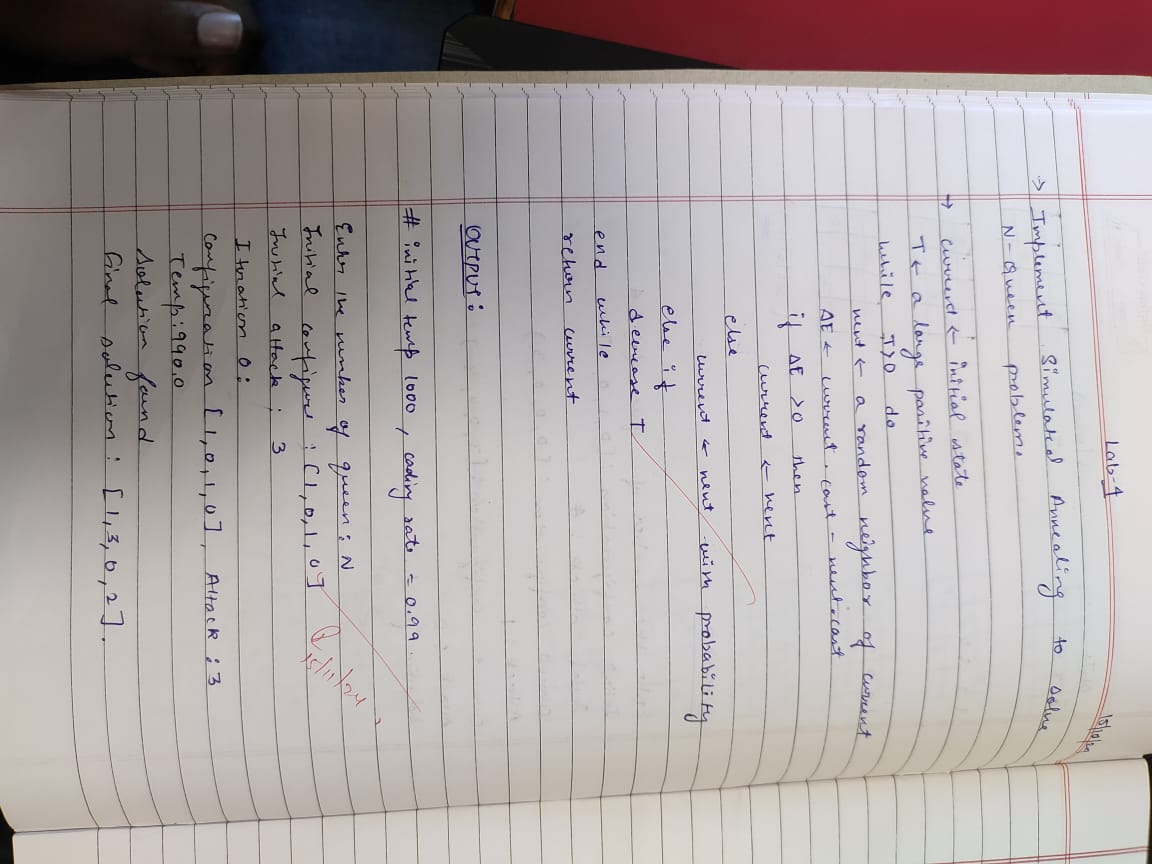 Lab-4
15/10/24
→ Implement Simulated Annealing to solve
N-Queen problem.
→ current ← initial state
T ← a large positive value
while T>0 do
next ← a random neighbor of current
ΔE ← current.cost - next.cost
if ΔE >0 then
current ← next
else
current ← next with probability
else if
decrease T
end while
return current
OUTPUT:
# initial temp 1000, cooling rate = 0.99.
Enter the number of queen: N
Initial configure: [1,0,1,0]
15/11/24
Initial attack: 3
Itration 0:
Configuration [1,0,1,0], Attack: 3
Temp: 990.0
Solution found
Final solution: [1,3,0,2].